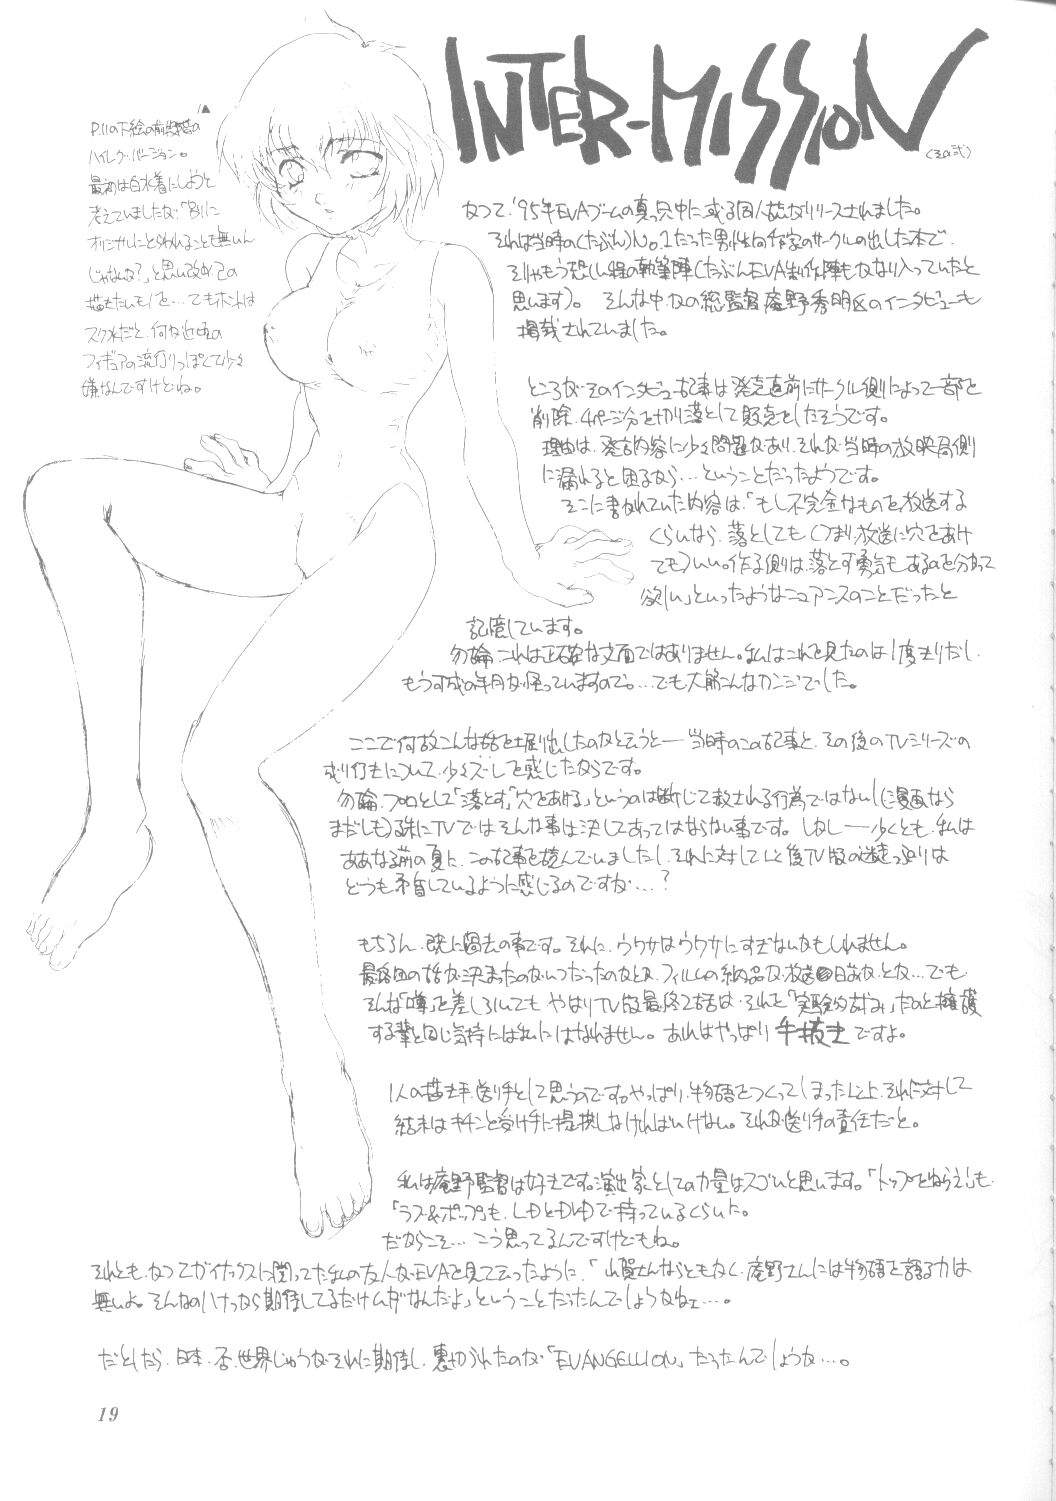 INTER-MISSION
(その弐)
P.11の下絵の前段階の
ハイレグ・バージョン。
最初は白水着にしようと
考えていましたが「別に
オリジナルにとらわれることも無いん
じゃないか?」と思い改めてこの
描きたいモノを…でもホントは
スク水だと、何か近頃の
フィギュアの流行りっぽくて少々
嫌なんですけどね。
かつて、'95年EVAブームの真っ只中に或る同人誌がリリースされました。
それは当時の(たぶん)No.1だった男性向作家のサークルの出した本で、
そりゃもう恐しい程の執筆陣(たぶんEVA制作陣もかなり入っていたと
思います)。そんな中かの総監督庵野秀明氏のインタビューも
掲載されていました。
ところがそのインタビュー記事は発売直前にサークル側によって一部を
削除、4ページ分を切り落として販売をしたそうです。
理由は、発言内容に少々問題があり、それが当時の放映局側
に漏れると困るから…ということだったようです。
そこに書かれていた内容は、「もし不完全なものを放送する
くらいなら、落としても(つまり、放送に穴をあけ
ても)いい。作る側は、落とす勇気もあるのを分かって
欲しい」といったようなニュアンスのことだったと
記憶しています。
勿論、これは正確な文面ではありません。私はこれを見たのは1度きりだし、
もう可成の年月が経っていますので。…でも大筋こんなカンジでした。
ここで何故こんな話を掘り出したのかと云うと――当時のこの記事と、その後のTVシリーズの
成り行きについて、少々ズレを感じたからです。
勿論、プロとして「落とす」「穴をあける」というのは断じて赦される行為ではないし(漫画なら
まだしも)殊にTVではそんな事は決してあってはならない事です。しかし――少くとも、私は
ああなる前の夏に、この記事を読んでいましたし、それに対して以後TV版の迷走っぷりは
どうも矛盾しているように感じるのですが…?
もちろん、既に過去の事です。それに、ウワサはウワサにすぎないかもしれません。
最終回の話が決まったのがいつだったのかとか、フィルムの納品が放送日前かとか…でも
そんな「噂」を差し引いても、やはりTV版最終2話は、それを「実験的試み」だのと擁護
する輩と同じ気持には私にはなれません。あれはやっぱり手抜きですよ。
1人の描き手、送り手として思うのです。やっぱり、物語をつくってしまった以上、それに対して
結末はキチンと受け手に提供しなければいけない。それが送り手の責任だと。
私は庵野監督は好きです。演出家としての力量はスゴいと思います。「トップをねらえ!」も
「ラブ&ポップ」も、LDとDVDで持っているくらいだ。
だからこそ…こう思ってるんですけどもね。
それとも、かつてガイナックスに関ってた私の友人がEVAを見て云ったように、「山賀さんならともかく、庵野さんには物語を語る力は
無いよ。そんなのハナっから期待してるだけムダなんだよ」ということだったんでしょうかねェ…。
だとしたら、日本、否、世界じゅうがそれに期待し、裏切られたのが「EVANGELLION」だったんでしょうか…。
19